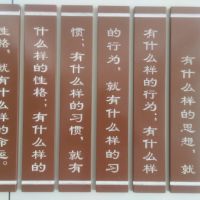 有什么样的思想，就
有什么样的行为；有什么样
的行为，就有什么样的习
惯；有什么样的习惯，就有
什么样的性格；有什么样的
性格，就有什么样的命运。